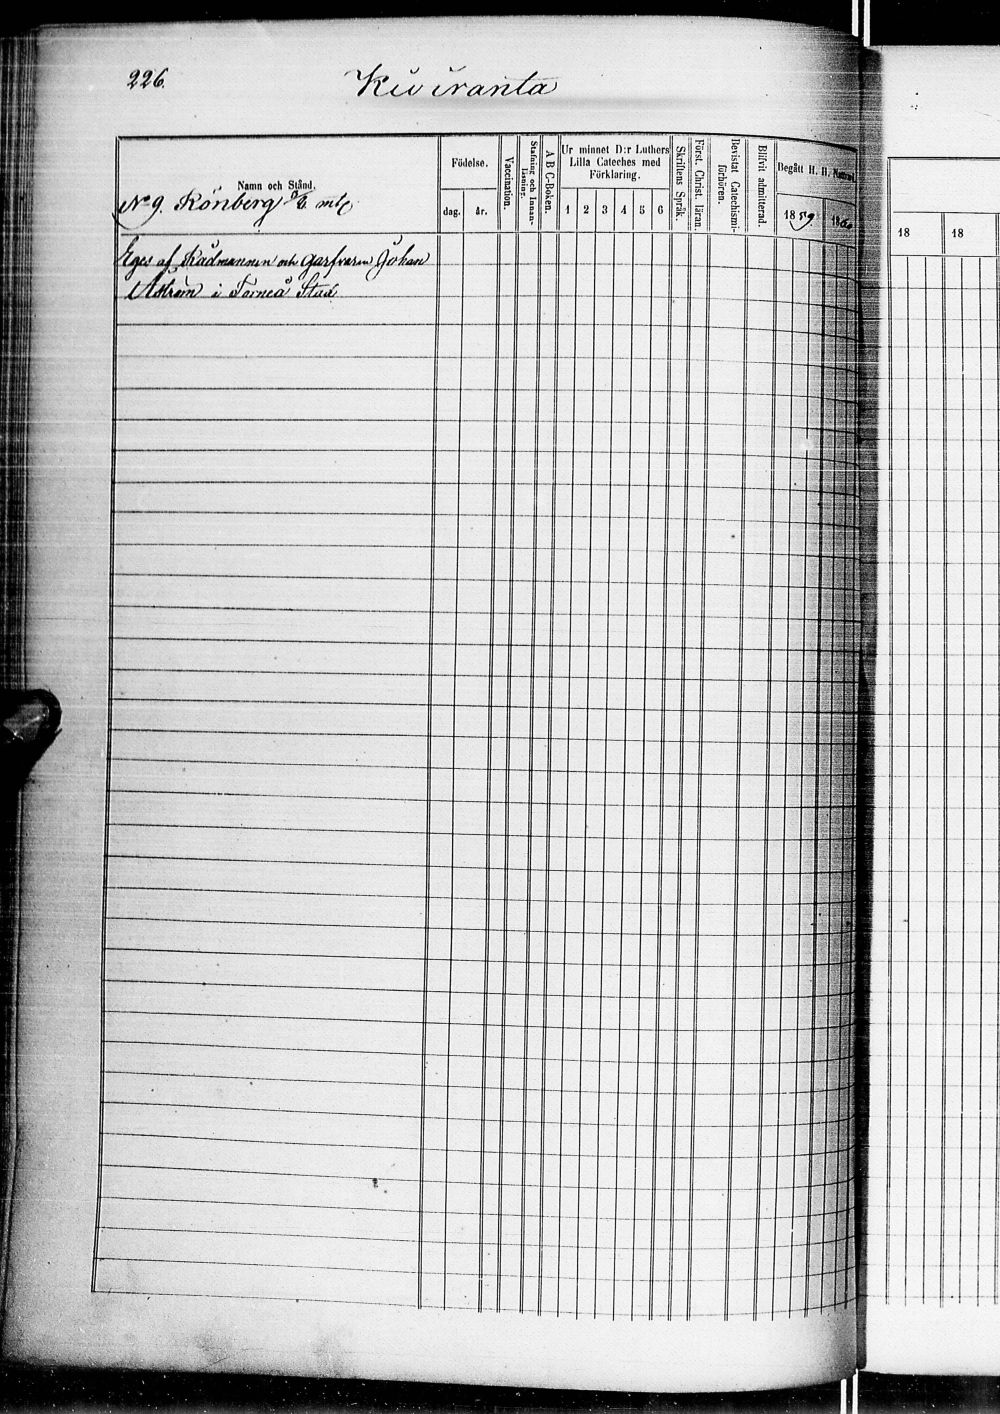 226.
Kuiiranta
Namn och Stånd.
No 9. Rönberg mtl
Födelse.
dag. år.
Vaccination.
Stafning och Innan-läsning.
A B C-Boken.
Ur minnet D:r Luthers
Lilla Cateches med
Förklaring.
1 2 3 4 5 6
Skriftens Språk.
Först. Christ. läran.
Bevistat Catechismi-förhören.
Blifvit admitterad.
Begått H. H. Nattvard.
1859. 1860
18 18
Eges af Rådmannen och Garfvaren Johan
Åström i Torneå Stad